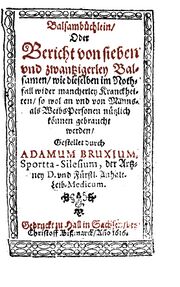 Balsambüchlein/
Oder
Bericht von sieben
vnd zwantzigerley Bal-
samen/ wie dieselben im Noth-
fall wider mancherley Kranckhei-
ten/ so wol an vnd von Manns-
als WeibsPersonen nützlich
können gebraucht
werden/
Gestellet durch
ADAMUM BRUXIUM,
Sprotta-Silesium, der Artz-
ney D. vnd Fürstl. Anhalt.
Leib-Medicum.
Gedruckt zu Hall in Sachsen/
Christoff Bißmarck/ Anno 1616.